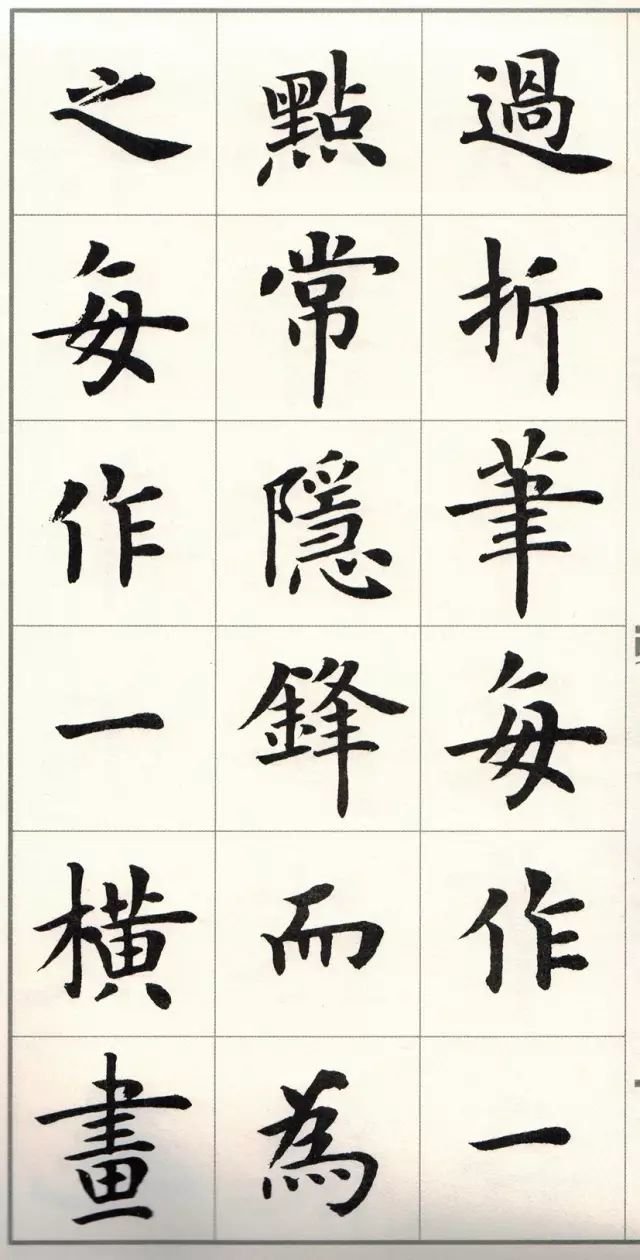 過折筆每作一
點常隱鋒而為
之每作一橫畫